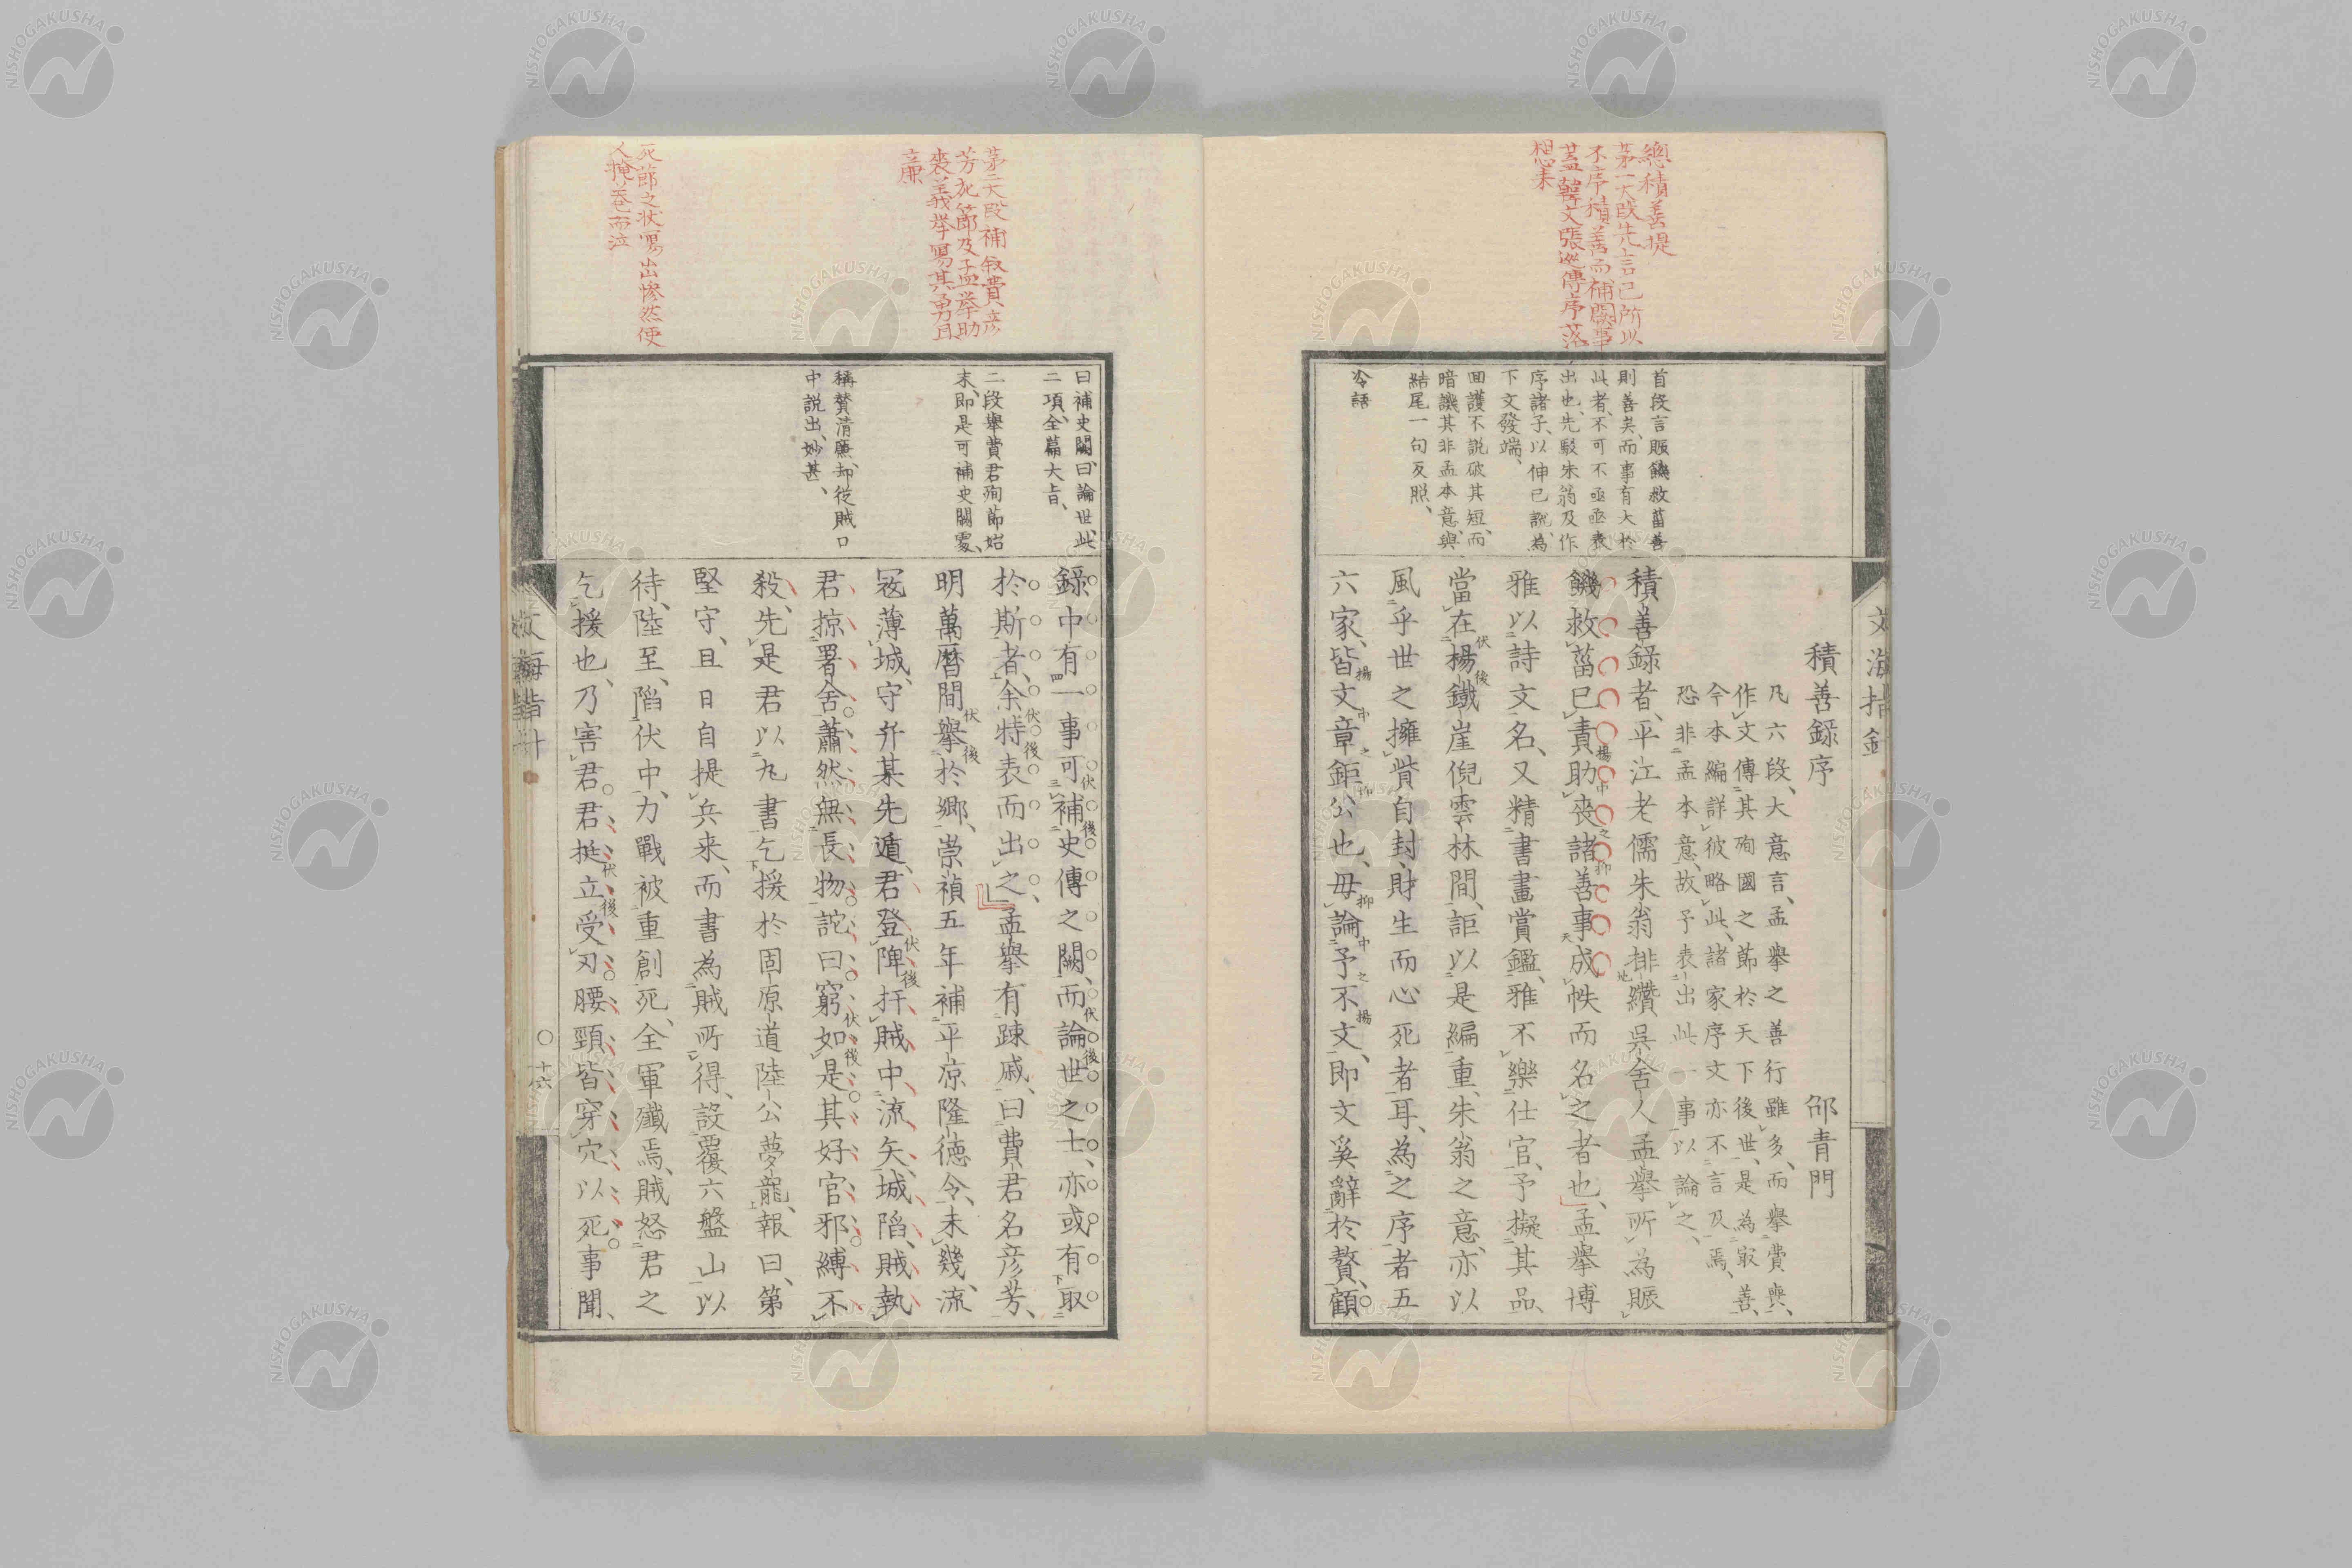 總積善提
第一大段先言己所以
不序積善而補闕事
蓋韓文張巡傳序落
想来
首段言賑饑救菑善
則善矣、而事有大於
此者、不可不亟亟表
出也、先駁朱翁及作
序諸子、以伸己説、為
下文發端、
回護不説破其短、而
暗譏其非孟本意、與
結尾一句反照、
冷語
文海指針
積善録序 邵青門
凡六段、大意言、孟擧之善行雖多、而擧費與、
作文傳其殉國之節於天下後世、是為最善、
今本編詳彼略此、諸家序文亦不言及焉、
恐非孟本意、故予表出此一事以論之、
積善録者、平江老儒朱翁排纘呉舎人孟擧所為賑
饑救菑已責助喪諸善事成帙而名之者也、孟擧博
雅以詩文名、又精書畫賞鑑、雅不樂仕官、予擬其品、
當在楊鐵崖倪雲林間、詎以是編重、朱翁之意、亦以
風乎世之擁貲自封、財生而心死者耳、為之序者五
六家、皆文章鉅公也、毋論予不文、即文奚辭於贅、顧
第二大段補叙費彦
芳死節及孟擧助
喪義擧寫其勇且
廉
死節之状寫出惨然使
人掩巻而泣
曰補史闕、曰論世、此
二項、全篇大旨、
二段擧費君殉節始
末、即是可補史闕處、
稱賛清廉、却從賊口
中説出、妙甚、
録中有一事可補史傳之闕、而論世之士、亦或有取
於斯者、余特表而出之、孟擧有踈戚、曰費君名彦芳、
明萬暦間擧於郷、崇禎五年補平凉隆徳令、未幾、流
冦薄城、守弁某先遁、君登陴扞賊中流矢、城陥、賊執
君掠署舎蕭然無長物、詫曰窮如是其好官邪縛不
殺、先是君以九書乞援於固原道陸公夢龍、報曰、第
堅守、且日自提兵来、而書為賊所得、設覆六盤山以
待、陸至、陥伏中、力戰被重創死、全軍殲焉、賊怒君之
乞援也、乃害君、君挺立受刃腰頸皆穿穴以死事聞、
文海指針
十六